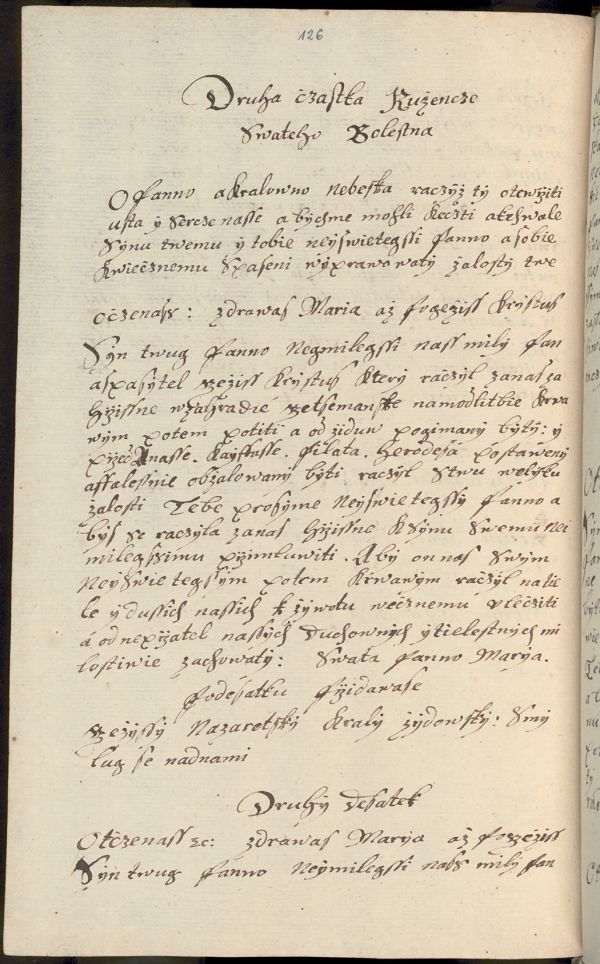 126
Druha cžastka Ružencze
Swateho Bolestna
O Panno a Kralowno Nebeska racžyž ty otewžiti
usta y Sercze nasse a bychme mohli Kecžti a khwale
Synu twemu y tobie neyswietegssi Panno a sobie
Kwiecžnemu Spaseni wyprawowaty žalosty twe
Otčzenass: zdrawas Maria až po gežiss Krystus
Syn twug Panno Negmilegssi nass mily Pan
a spasytel gežiss Krystus Ktery racžyl za nas za
hržissne w zahradie getsemanske na modlitbie Krwa
wym potem potiti a od židuw pogimany byty: y
pržed Annasse. Kayfasse. Pilata. Herodesa postaweny
a ffalessnie obžalowany byti racžyl Stwu welyku
žalosti Tebe prosyme Neyswietegssy Panno a
bys se racžyla za nas hržissne K Synu Swemu Nei
milegssimu pržimluwiti. Aby on nas Swym
Neyswietegssym potem Krwawym racžyl na tie
le y dussich nassich k žywotu wecžnemu vlecžiti
a od nepržatel nassych duchownych y tielestnych mi
lostiwie zachowaty: Swata Panno Marya.
Po desatku Pržidawase
gežyssy Nazaretsky Kraly žydowsky: Smy
lug se nad nami
Druhy desatek
Otčzenass &c: zdrawas Marya až po gežiss
Syn twug Panno Neymilegssi nass mily Pan